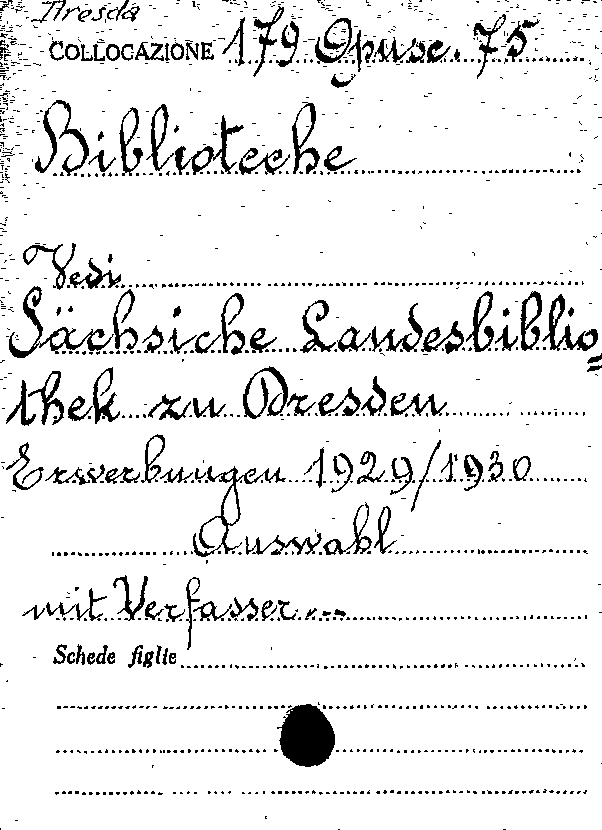 Dresda
COLLOCAZIONE 179 Opusc. 75
Biblioteche
Vedi
Sächsiche Landesbiblio=
thek zu Dresden
Erwerbungen 1929/1930
Auswahl
mit Verfasser...
Schede figlie